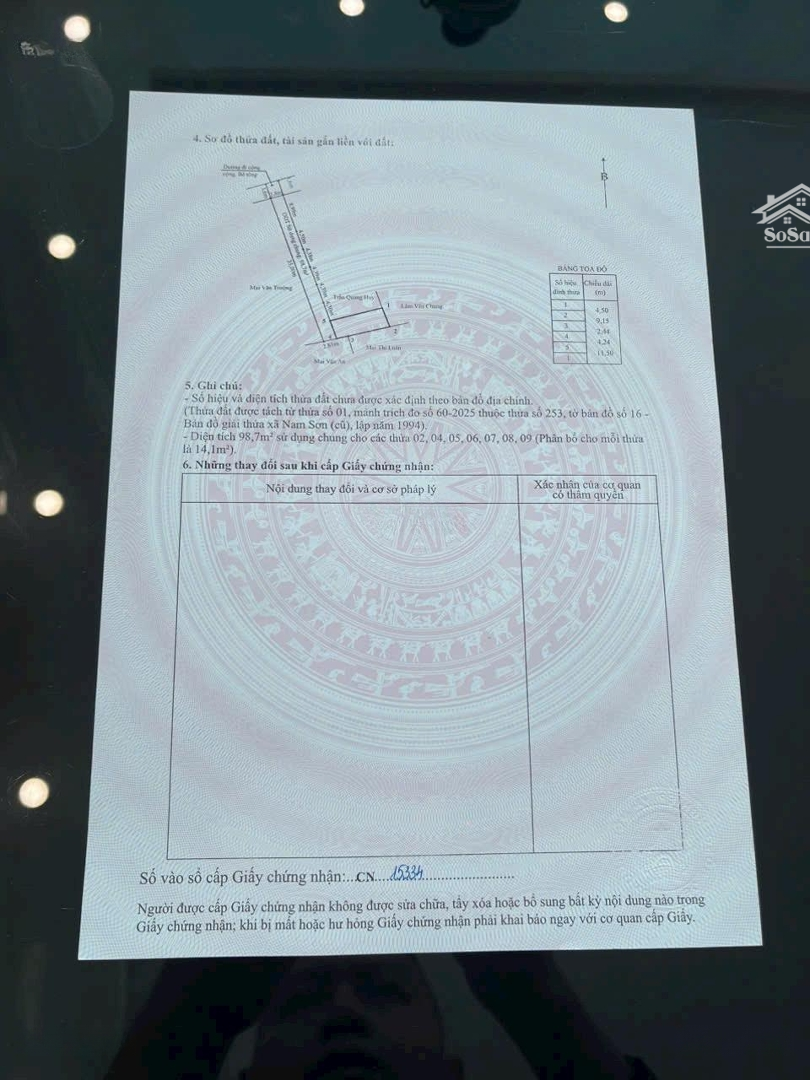 4. Sơ đồ thửa đất, tài sản gắn liền với đất:
Đường đi công
cộng, Bờ sông
B
SoSa
Mai Văn Trường
Trần Quang Huy
Lâm Văn Chung
1
2
3
Mai Thị Luân
Mai Văn An
BẢNG TỌA ĐỘ
Số hiệu đỉnh thửa
Chiều dài (m)
1
4,50
2
9,15
3
2,44
4
4,24
5
11,50
1
5. Ghi chú:
- Số hiệu và diện tích thửa đất chưa được xác định theo bản đồ địa chính.
(Thửa đất được tách từ thửa số 01, mảnh trích đo số 60-2025 thuộc thửa số 253, tờ bản đồ số 16 -
Bản đồ giải thửa xã Nam Sơn (cũ), lập năm 1994).
- Diện tích 98,7m² sử dụng chung cho các thửa 02, 04, 05, 06, 07, 08, 09 (Phân bổ cho mỗi thửa
là 14,1m²).
6. Những thay đổi sau khi cấp Giấy chứng nhận:
Nội dung thay đổi và cơ sở pháp lý
Xác nhận của cơ quan
có thẩm quyền
Số vào sổ cấp Giấy chứng nhận:...CN....15334........................
Người được cấp Giấy chứng nhận không được sửa chữa, tẩy xóa hoặc bổ sung bất kỳ nội dung nào trong
Giấy chứng nhận; khi bị mất hoặc hư hỏng Giấy chứng nhận phải khai báo ngay với cơ quan cấp Giấy.